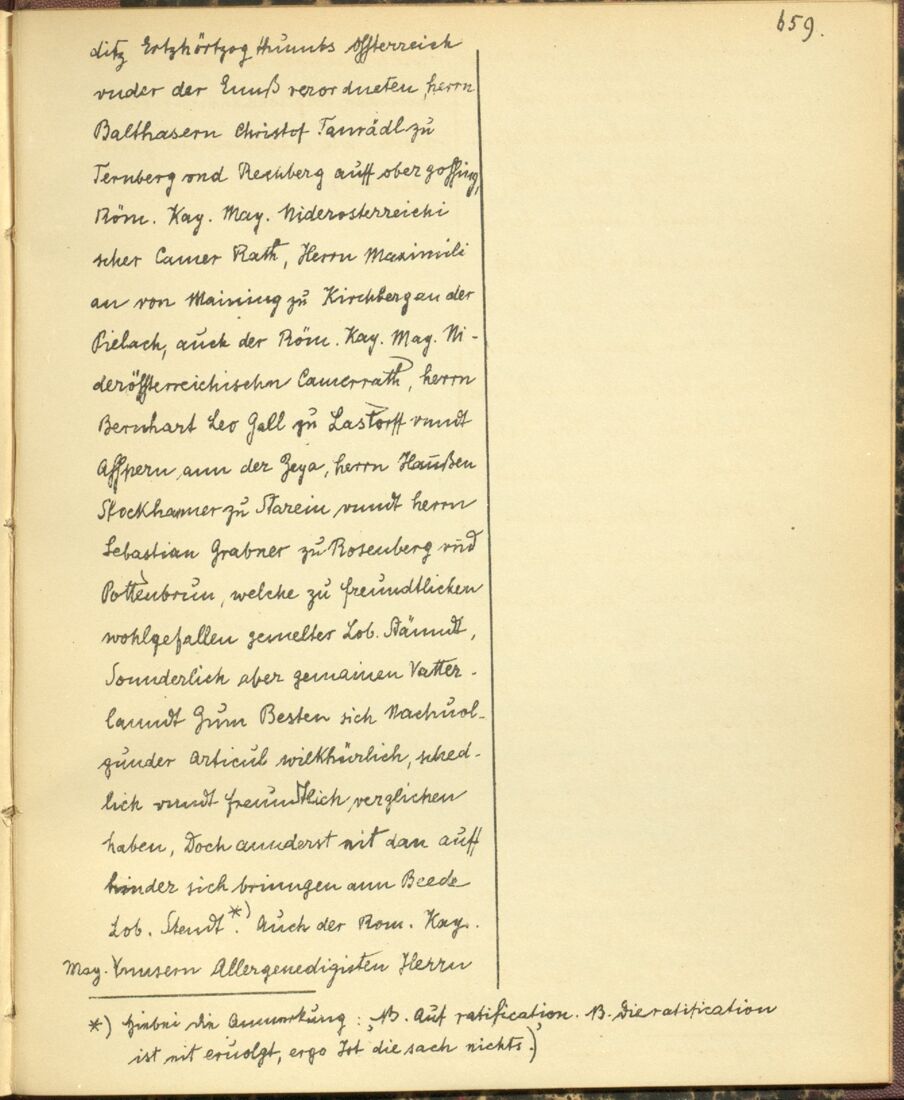 659.
ditz Ertzhörtzogthumbs Össterreich
vnder der Ennß verordneten, herrn
Balthasern Christof Tanrädl zu
Ternberg vnd Rechberg auff obergossing,
Röm. Kay. May. Niderosterreichi
scher Camer Rath, Herrn Maximili
an von Maining zu Kirchberg an der
Pielach, auch der Röm. Kay. May. Ni-
derössterreichischn Camerrath, herrn
Bernhart Leo Gall zu Lastorff vnndt
Asspern ann der Zeya, herrn Hanßen
Stockharner zu Starein, vnndt herrn
Sebastian Grabner zu Rosenberg vnd
Pottenbrun, welche zu freundtlichen
wohlgefallen gemelter Lob. Stänndt,
Sonnderlich aber gemainen Vatter-
lanndt Zum Besten sich Nachuol-
gunder Articul wilkhürlich, sched-
lich vnndt freundtlich verglichen
haben, Doch annderst nit dan auff
hinder sich brinngen ann Beede
Lob. Stendt *). Auch der Rom. Kay.
May. Vnnsern Allergenedigisten Herrn
*) Hiebei die Anmerkung: „NB. Auf ratification. NB. Die ratification
ist nit eruolgt, ergo Ist die sach nichts.)"